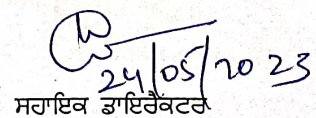 24/05/2023
ਸਹਾਇਕ ਡਾਇਰੈਕਟਰ